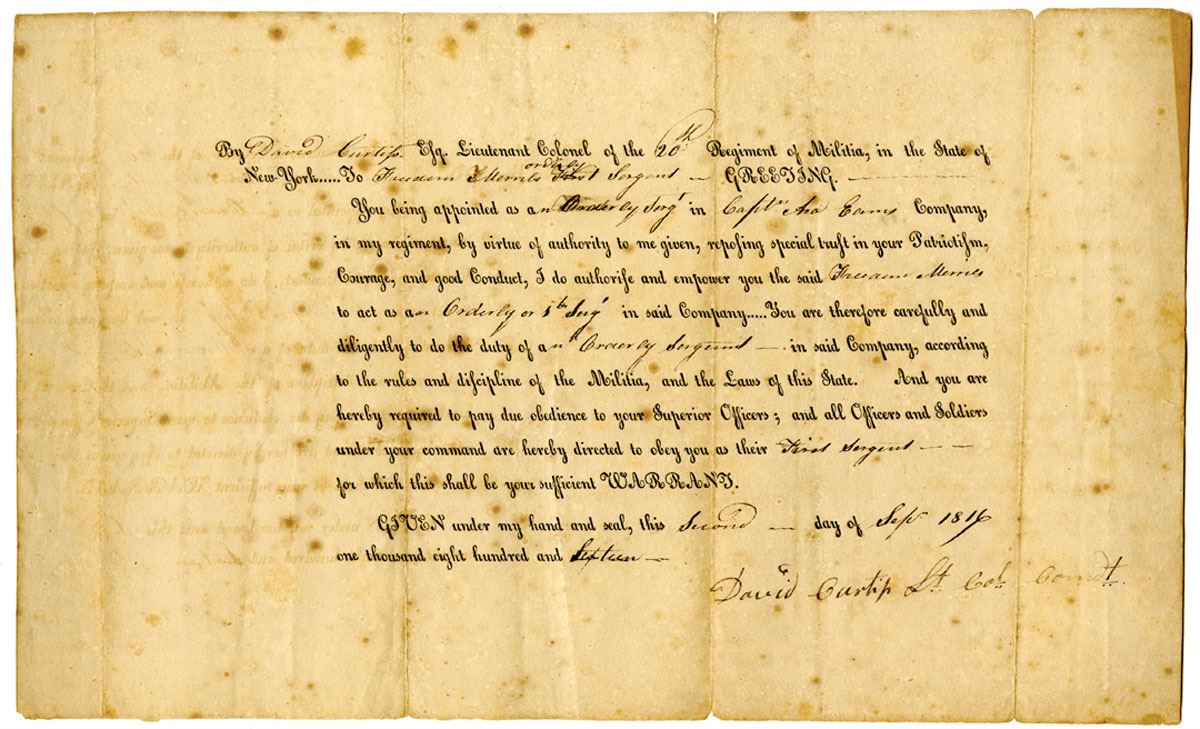 By David Curtiſs Eſq. Lieutenant Colonel of the 20th Regiment of Militia, in the State of
orderly
New-York.....To Freedom Merrils First Sergent — GREETING. —
You being appointed as an Orderly Sergt in Captn Asa Eams Company,
in my regiment, by virtue of authority to me given, repoſing special truſt in your Patriotiſm,
Courage, and good Conduct, I do authoriſe and empower you the said Freedom Merrils
to act as an Orderly or 1st Sergt in said Company.....You are therefore carefully and
diligently to do the duty of an Orderly Sergent — in said Company, according
to the rules and diſcipline of the Militia, and the Laws of this State. And you are
hereby required to pay due obedience to your Superior Officers; and all Officers and Soldiers
under your command are hereby directed to obey you as their First Sergent — —
for which this shall be your sufficient WARRANT.
GIVEN under my hand and seal, this Second — day of Sept 1816
one thousand eight hundred and Sixteen —
David Curtiſs Lt Col Comdt.